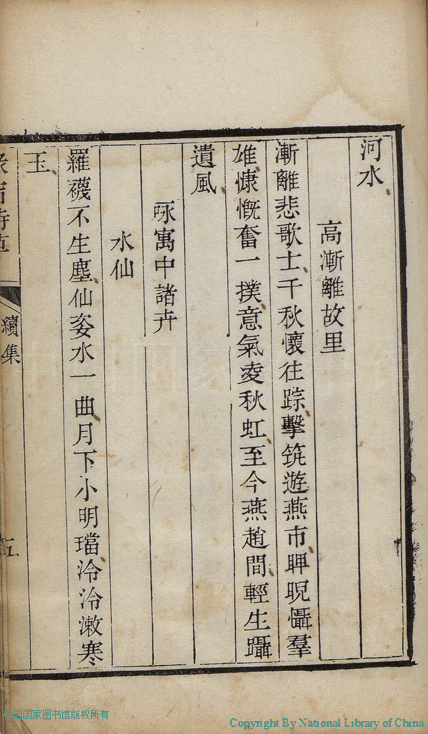 河水
高漸離故里
漸離悲歌士千秋懷往踪擊筑遊燕市睥睨懾羣
雄慷慨奮一撲意氣凌秋虹至今燕趙間輕生躡
遺風
詠寓中諸卉
水仙
羅襪不生塵仙姿水一曲月下小明璫泠泠漱寒
玉
續集
五
中国国家图书馆版权所有
Copyright By National Library of China